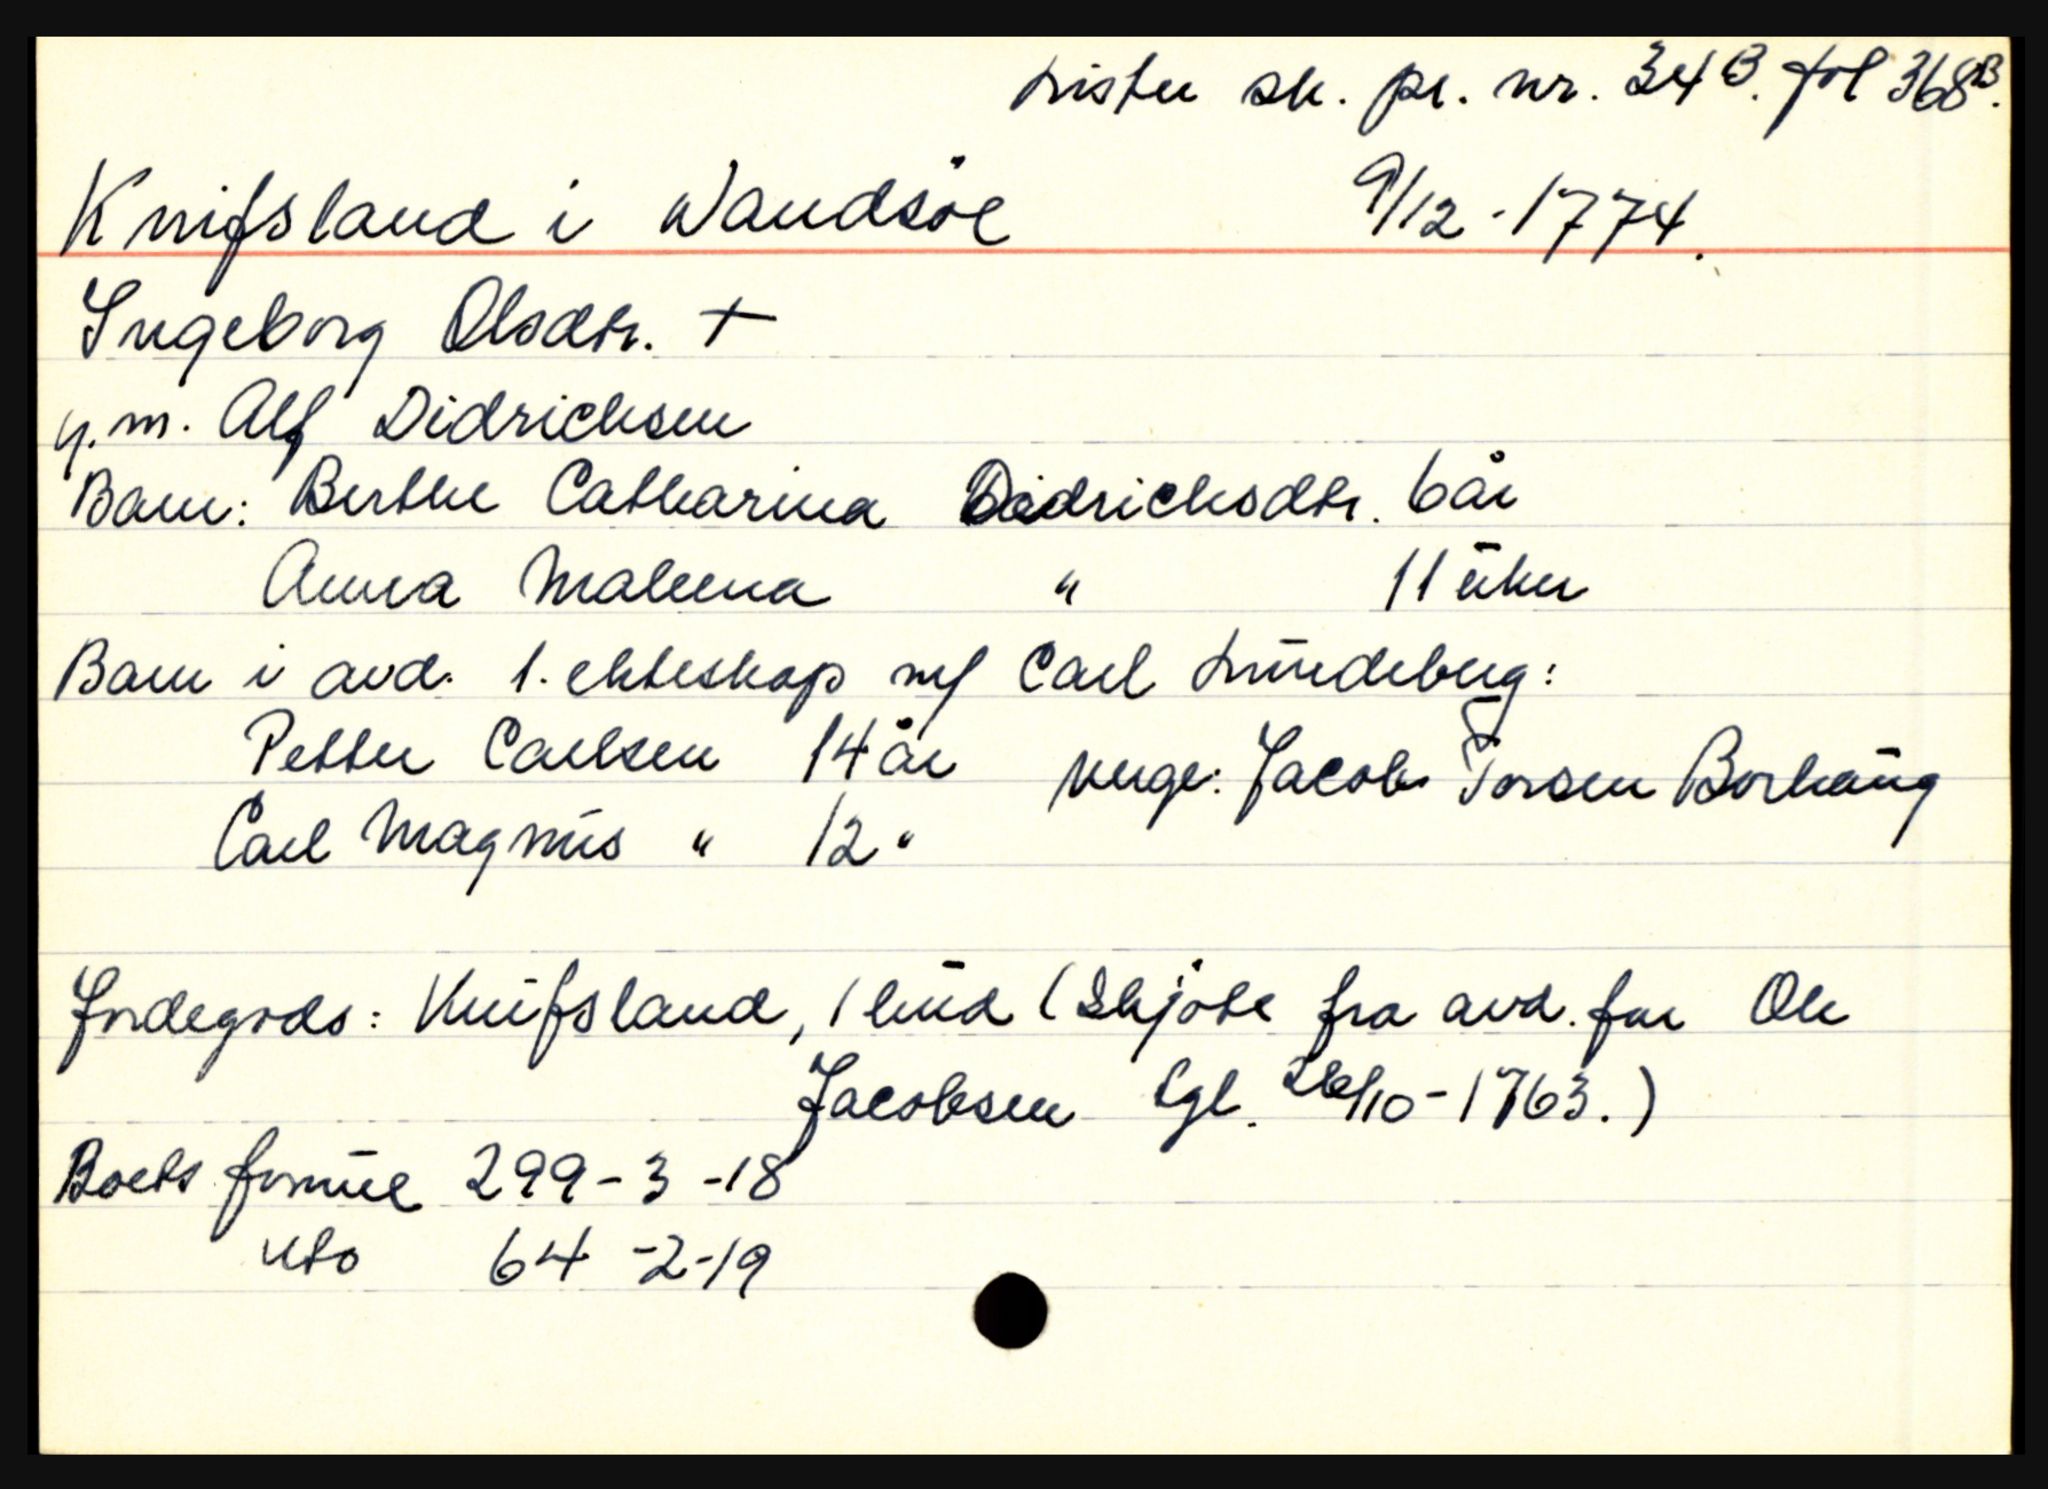 Lister sk. pr. nr. 34B. fol 368B.
Knifsland i Wandsöe 9/12-1774.
Ingeborg Olsdtr. +
g.m. Alf Didrichsen
Barn: Berthe Catharina Didrichsdtr. 6 år
Anna Maleena " 11 uker
Barn i avd. 1. ekteskap m/ Carl Lundeberg:
Petter Carlsen 14 år Verge: Jacob Torsen Borhaug
Carl Magnus " 12 "
Jordegods: Knifsland, 1 hud (Skjöte fra avd. far Ole
Jacobsen tgl. 26/10-1763.)
Boets formue 299-3-18
Nto 64-2-19